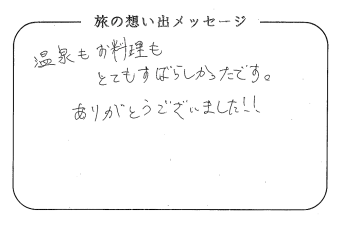 旅の想い出メッセージ
温泉もお料理も
とてもすばらしかったです。
ありがとうございました!!